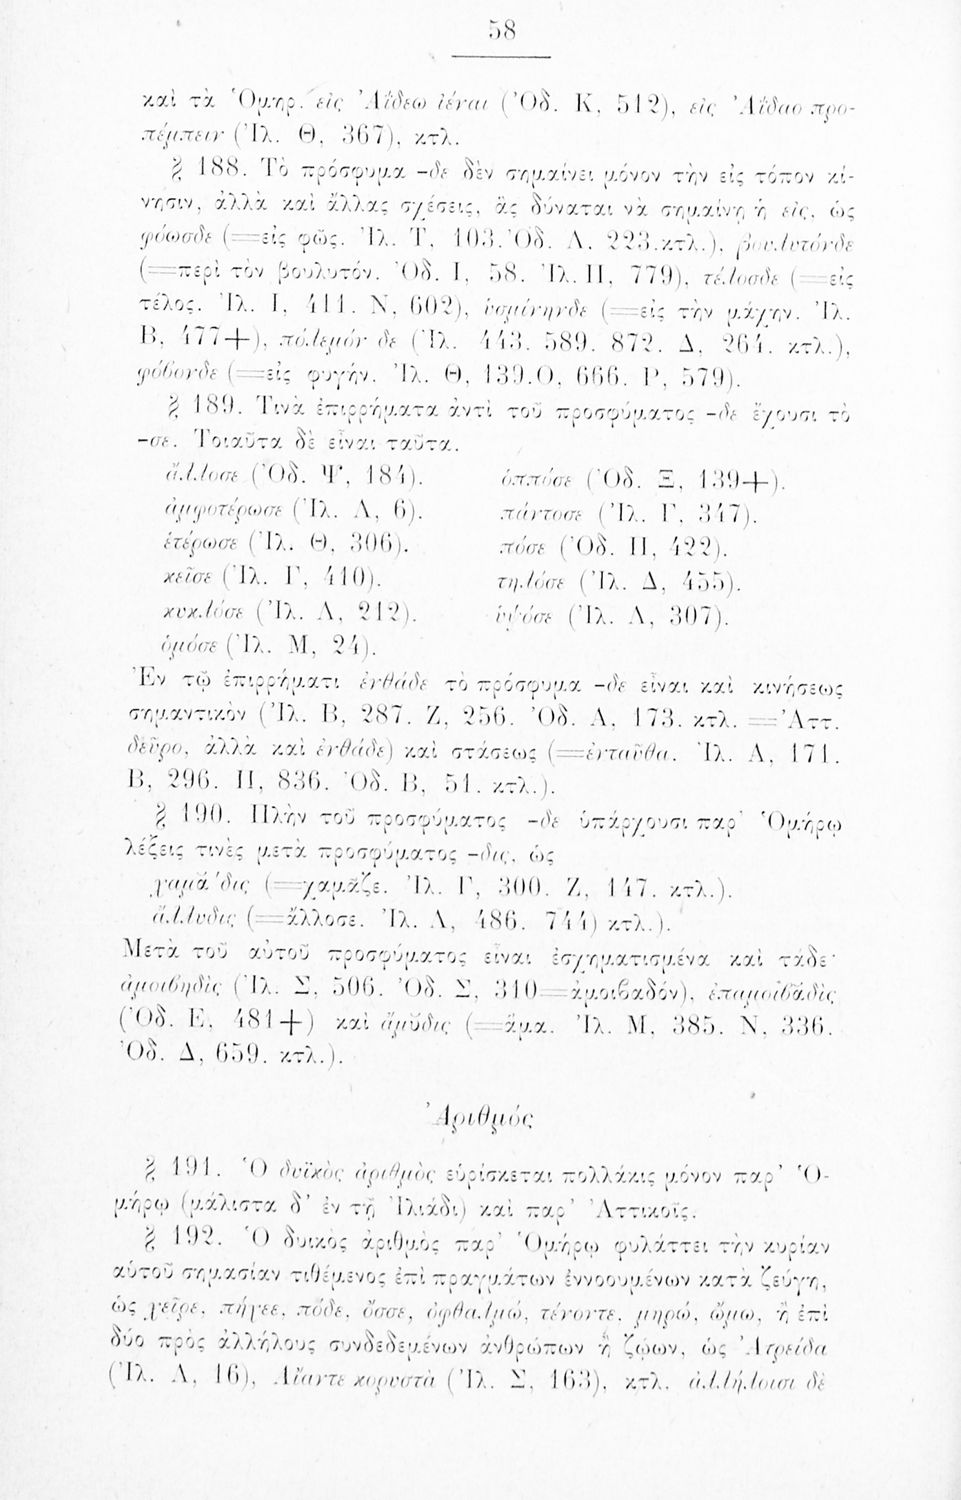 58
καὶ τὰ Ὁμηρ. εἰς Ἀΐδεω ἰέναι (Ὀδ. Κ, 512), εἰς Ἀΐδαο προ-
πέμπειν (Ἰλ. Θ, 367), κτλ.
§ 188. Τὸ πρόσφυμα –δε δὲν σημαίνει μόνον τὴν εἰς τόπον κί-
νησιν, ἀλλὰ καὶ ἄλλας σχέσεις, ἃς δύναται νὰ σημαίνῃ ἡ εἰς, ὡς
φόωσδε (=εἰς φῶς. Ἰλ. Τ, 103. Ὀδ. Λ, 223. κτλ.), βουλυτόνδε
(=περὶ τὸν βουλυτόν. Ὀδ. Ι, 58. Ἰλ. Π, 779), τέλοσδε (=εἰς
τέλος. Ἰλ. Ι, 411. Ν, 602), ὑσμίνηνδε (=εἰς τὴν μάχην. Ἰλ.
Β, 477+), πόλεμόν δε (Ἰλ. 443. 589. 872. Δ, 264. κτλ.),
φόβονδε (=εἰς φυγήν. Ἰλ. Θ, 139. Ο, 666. Ρ, 579).
§ 189. Τινὰ ἐπιρρήματα ἀντὶ τοῦ προσφύματος –δε ἔχουσι τὸ
–σε. Τοιαῦτα δὲ εἶναι ταῦτα.
ἄλλοσε (Ὀδ. Ψ, 184). ὁππόσε (Ὀδ. Ξ, 139+).
ἀμφοτέρωσε (Ἰλ. Λ, 6). πάντοσε (Ἰλ. Γ, 347).
ἑτέρωσε (Ἰλ. Θ, 306). πόσε (Ὀδ. Π, 422).
κεῖσε (Ἰλ. Γ, 410). τηλόσε (Ἰλ. Δ, 455).
κυκλόσε (Ἰλ. Λ, 212). ὑψόσε (Ἰλ. Λ, 307).
ὁμόσε (Ἰλ. Μ, 24).
Ἐν τῷ ἐπιρρήματι ἐνθάδε τὸ πρόσφυμα –δε εἶναι καὶ κινήσεως
σημαντικὸν (Ἰλ. Β, 287. Ζ, 256. Ὀδ. Α, 173. κτλ. =Ἀττ.
δεῦρο, ἀλλὰ καὶ ἐνθάδε) καὶ στάσεως (=ἐνταῦθα. Ἰλ. Α, 171.
Β, 296. Π, 836. Ὀδ. Β, 51. κτλ.).
§ 190. Πλὴν τοῦ προσφύματος –δε ὑπάρχουσι παρ' Ὁμήρῳ
λέξεις τινὲς μετὰ προσφύματος –δις, ὡς
χαμάδις (=χαμᾶζε. Ἰλ. Γ, 300. Ζ, 147. κτλ.).
ἄλλυδις (=ἄλλοσε. Ἰλ. Λ, 486. 744) κτλ.).
Μετὰ τοῦ αὐτοῦ προσφύματος εἶναι ἐσχηματισμένα καὶ τάδε·
ἀμοιβηδὶς (Ἰλ. Σ, 506. Ὀδ. Σ, 310=ἀμοιβαδόν), ἐπαμοιβᾰδὶς
(Ὀδ. Ε, 481+) καὶ ἄμῠδις (=ἅμα. Ἰλ. Μ, 385. Ν, 336.
Ὀδ. Δ, 659. κτλ.).
Ἀριθμός
§ 191. Ὁ δυϊκὸς ἀριθμὸς εὑρίσκεται πολλάκις μόνον παρ' Ὁ-
μήρῳ (μάλιστα δ' ἐν τῇ Ἰλιάδι) καὶ παρ' Ἀττικοῖς.
§ 192. Ὁ δυικὸς ἀριθμὸς παρ' Ὁμήρῳ φυλάττει τὴν κυρίαν
αὑτοῦ σημασίαν τιθέμενος ἐπὶ πραγμάτων ἐννοουμένων κατὰ ζεύγη,
ὡς χεῖρε, πήχεε, πόδε, ὄσσε, ὀφθαλμώ, τένοντε, μηρώ, ὤμω, ἢ ἐπὶ
δύο πρὸς ἀλλήλους συνδεδεμένων ἀνθρώπων ἢ ζώων, ὡς Ἀτρείδα
(Ἰλ. Α, 16), Αἴαντε κορυστὰ (Ἰλ. Σ, 163), κτλ. ἀλλήλοισι δὲ